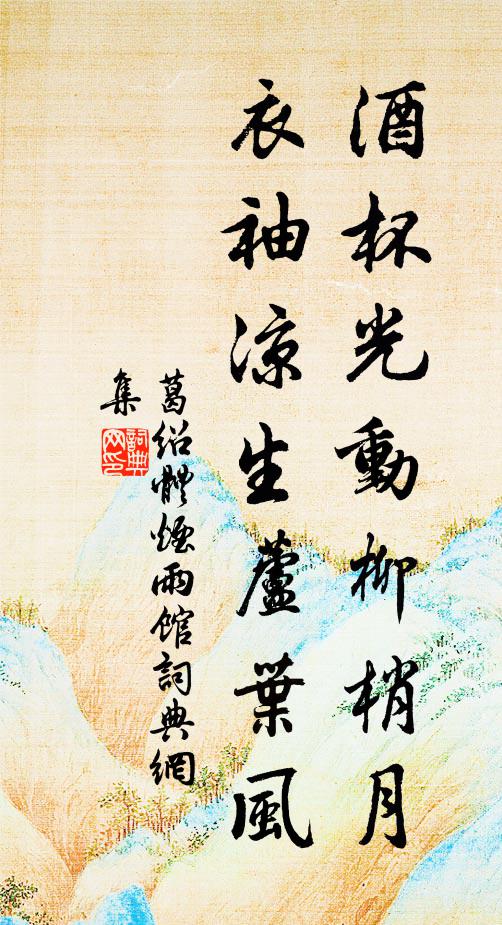 酒杯光動柳梢月
衣袖凉生蘆葉風
葛绍體煙雨馆詞典網
集
詞典
网印